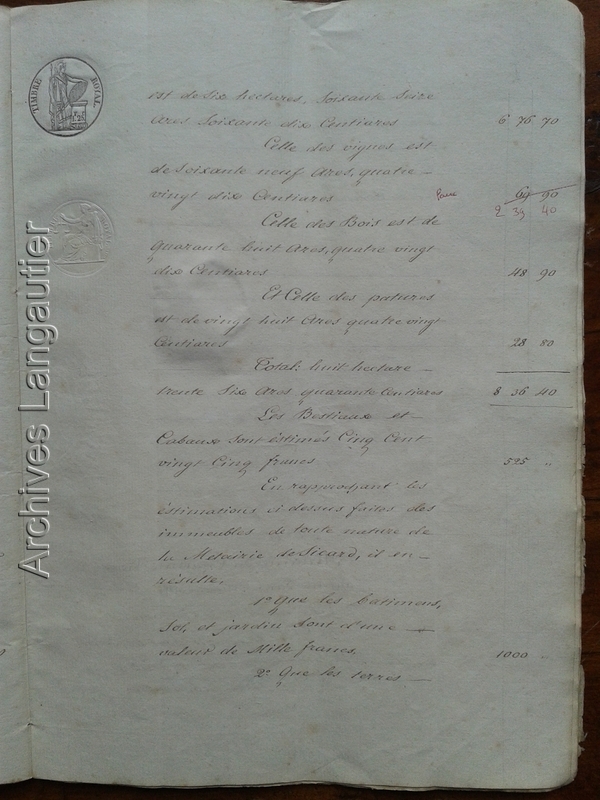 TIMBRE ROYAL
est de Six hectares, Soixante Seize
Ares Soixante dix Centiares 6 76 70
Celle des vignes est
de Soixante neuf Ares, quatre
vingt dix Centiares 69 90
2 39 40
Celle des Bois est de
quarante huit Ares, quatre vingt
dix Centiares 48 90
Et Celle des patures
est de vingt huit Ares quatre vingt
Centiares 28 80
Total: huit hectare
trente Six Ares quarante Centiares 8 36 40
Les Bestiaux et
Cabaux sont éstimés Cinq Cent
vingt Cinq francs 525 "
En rapprochant les
éstimations si dessus faites des
immeubles de toute nature de
la Metairie de Sicard, il en
résulte,
1° Que les batimens,
Sol, et jardin sont d'une
valeur de Mille francs. 1000 "
2° Que les terres
Archives Langautier